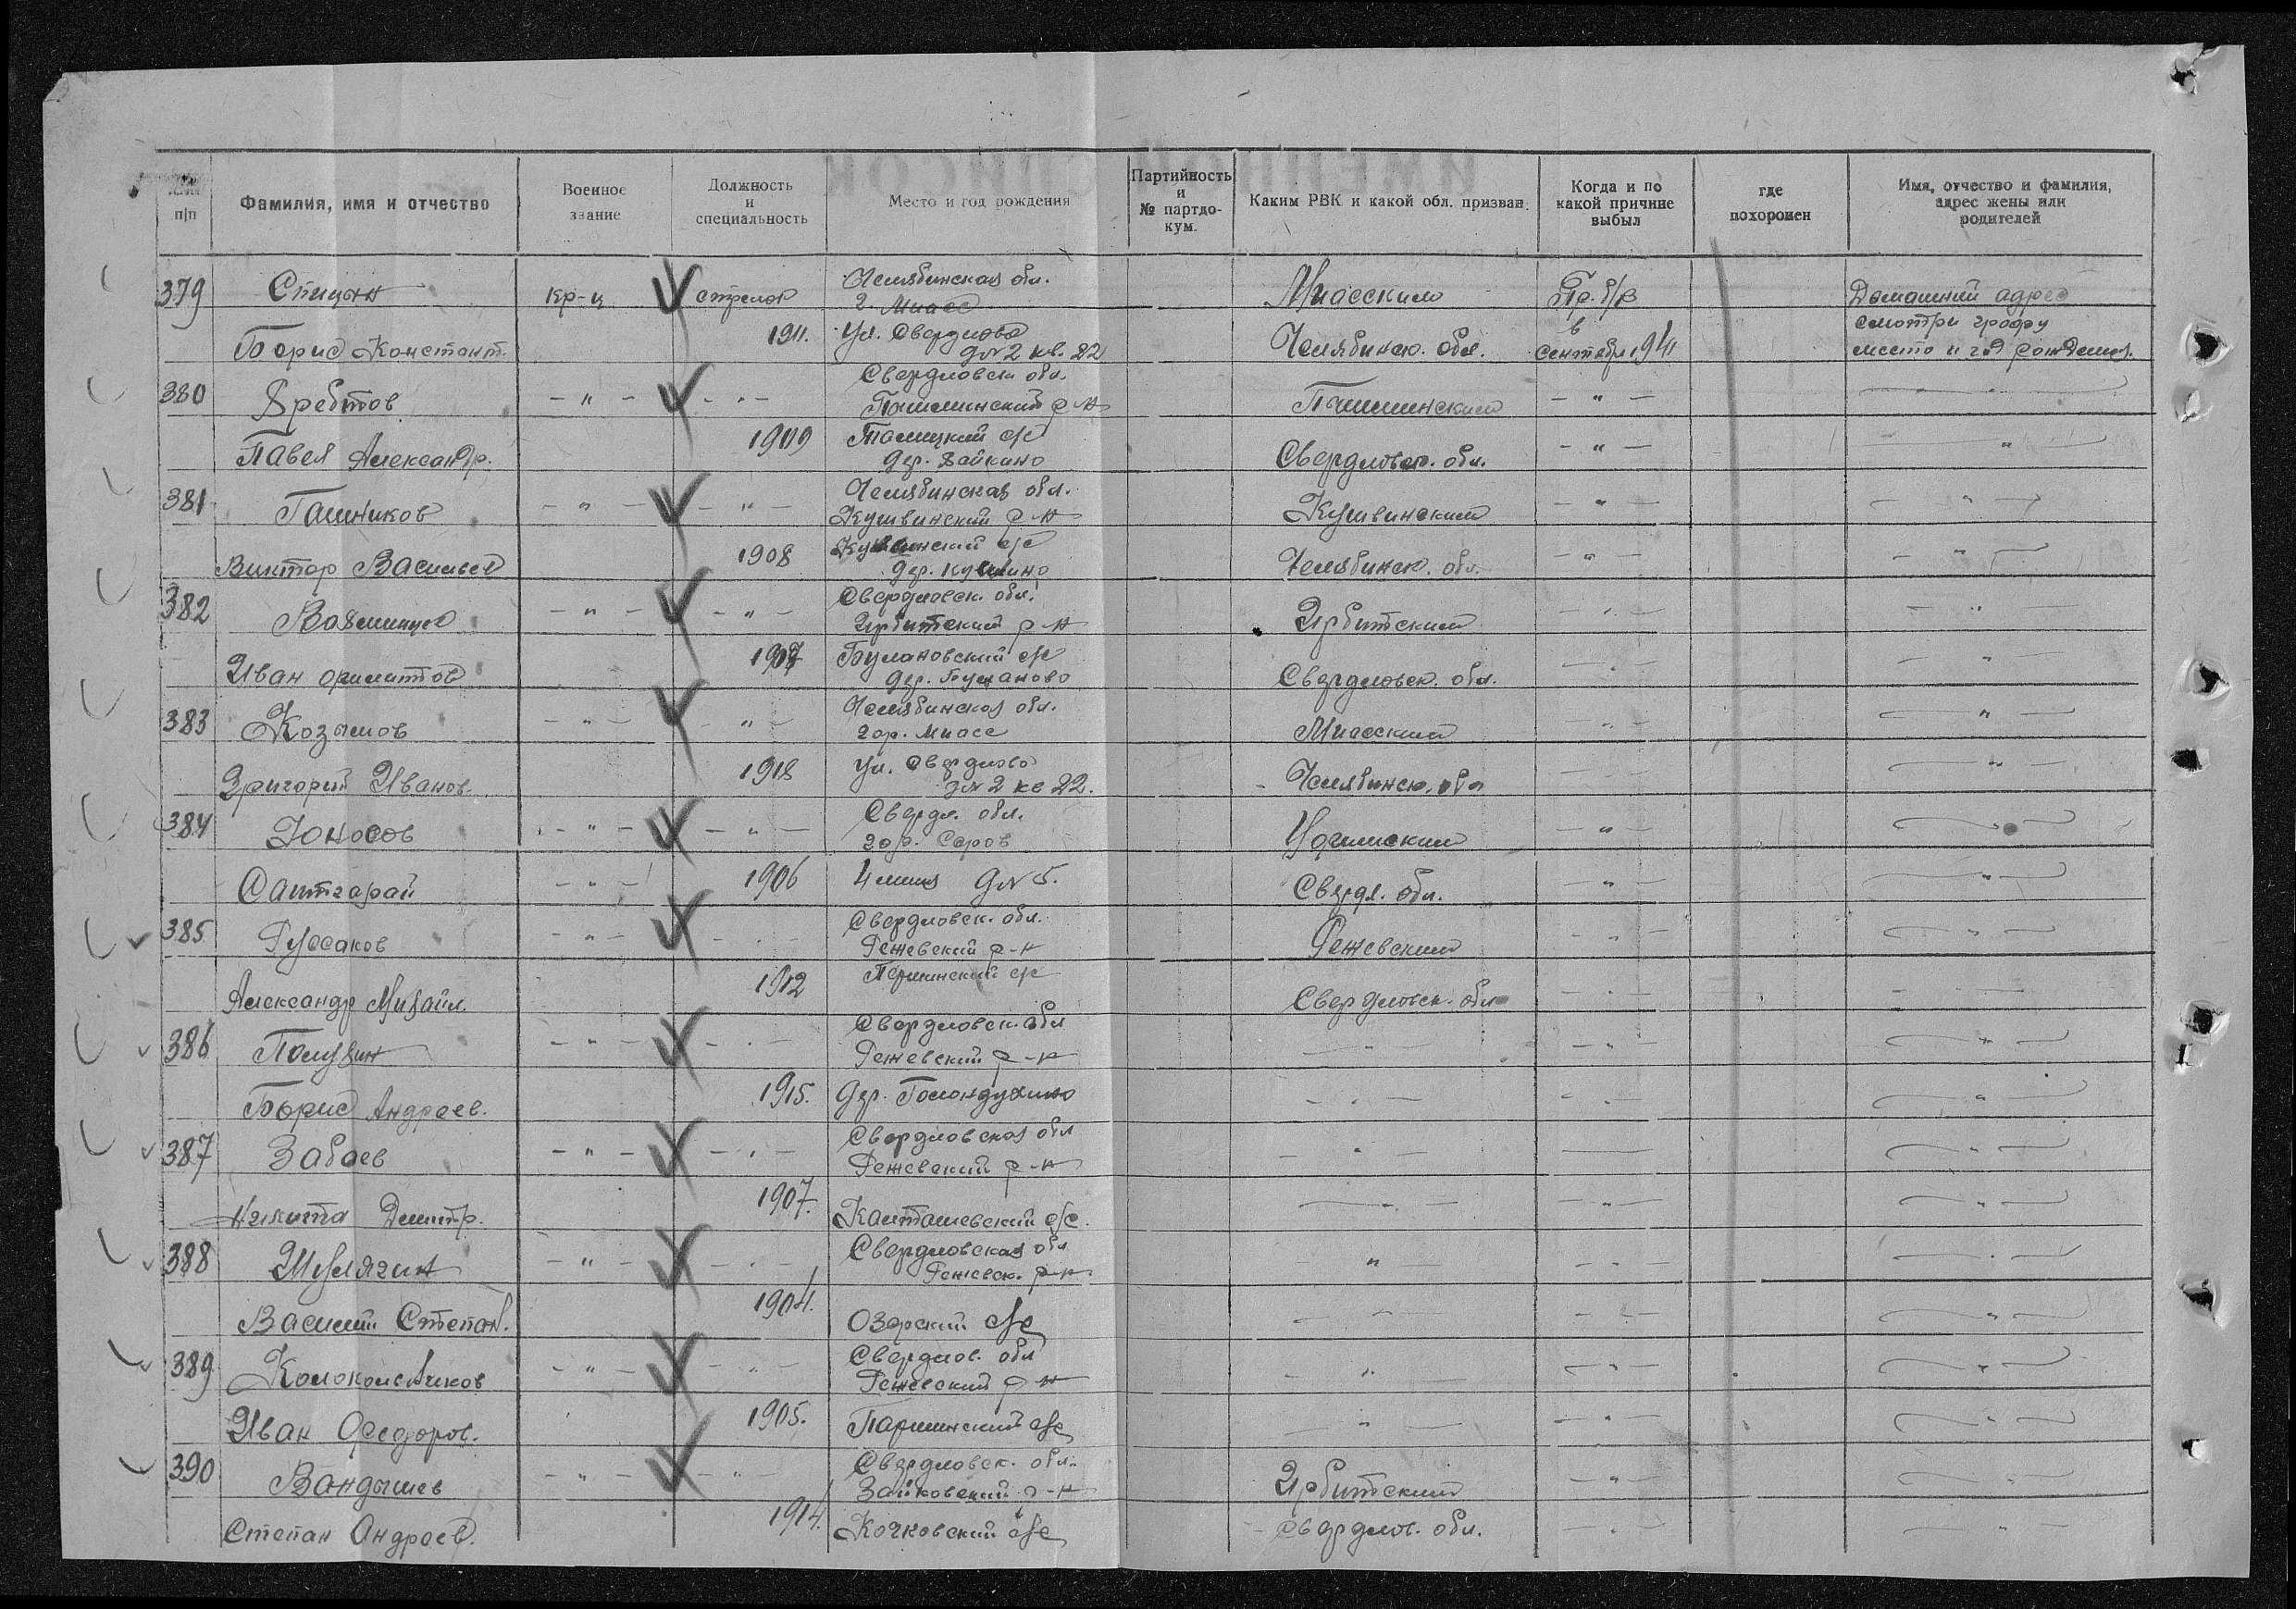 п/п
Фамилия, имя и отчество
Военное звание
Должность и специальность
Место и год рождения
Партийность и № партдо-кум.
Каким РВК и какой обл. призван
Когда и по какой причине выбыл
где похоронен
Имя, отчество и фамилия, адрес жены или родителей
379 Спицын кр-ц стрелок Челябинская обл. г. Миасс Миасским Пр. б/в Домашний адрес
Борис Констант. 1911. Ул. Свердлова д№2 кв. 22 Челябинск. обл. в сентябре 1941 смотри графу место и год рождения.
380 - " - Свердловск обл. Пышминский р-н Пышминским - " -
Павел Александр. 1909 Талицкий с/с дер. Свердловск. обл. - " -
381 - " - - " - Челябинская обл. Кушвинский р-н Кушвинским - " -
Виктор Васильев 1908 с/с дер. Челябинск. обл. - " -
382 - " - - " - Свердловск. обл. Ирбитский р-н Ирбитским
Иван 1907 Булановский с/с дер. Буланово Свердловск. обл. - " -
383 Козымов - " - - " - Челябинская обл. гор. Миасс Миасский - " -
Григорий Иванов. 1918 Ул. Свердлова д№2 кв 22. Челябинск. обл
384 Юносов - " - - " - Свердл. обл. гор. Серов - " -
Саитгарай - " - 1906 д№5. Свердл. обл. - " -
385 Руссаков - " - Свердловск. обл. Режевский р-н Режевским - " -
Александр Михайл. 1912 с/с Свердловск. обл
386 Полузин - " - Свердловск. обл Режевский р-н - " -
Борис Андреев. 1915. Дер. Голендухино - " -
387 Забаев - " - Свердловская обл Режевский р-н - " -
Никита Дмитр. 1907. с/с. - " -
388 Шулягин - " - Свердловская обл Режевск. р-н "
Василий Степан. 1904. Озерский с/с - " -
389 Колокольчиков - " - Свердлов. обл Режевский р-н - " -
Иван Федоров. 1905. Паршинский с/с - " -
390 Вандышев - " - - " - Свердловск. обл. Зайковский р-н Ирбитский - " -
Степан Андреев. 1914. Кочковский с/с Свердлов. обл. - " -